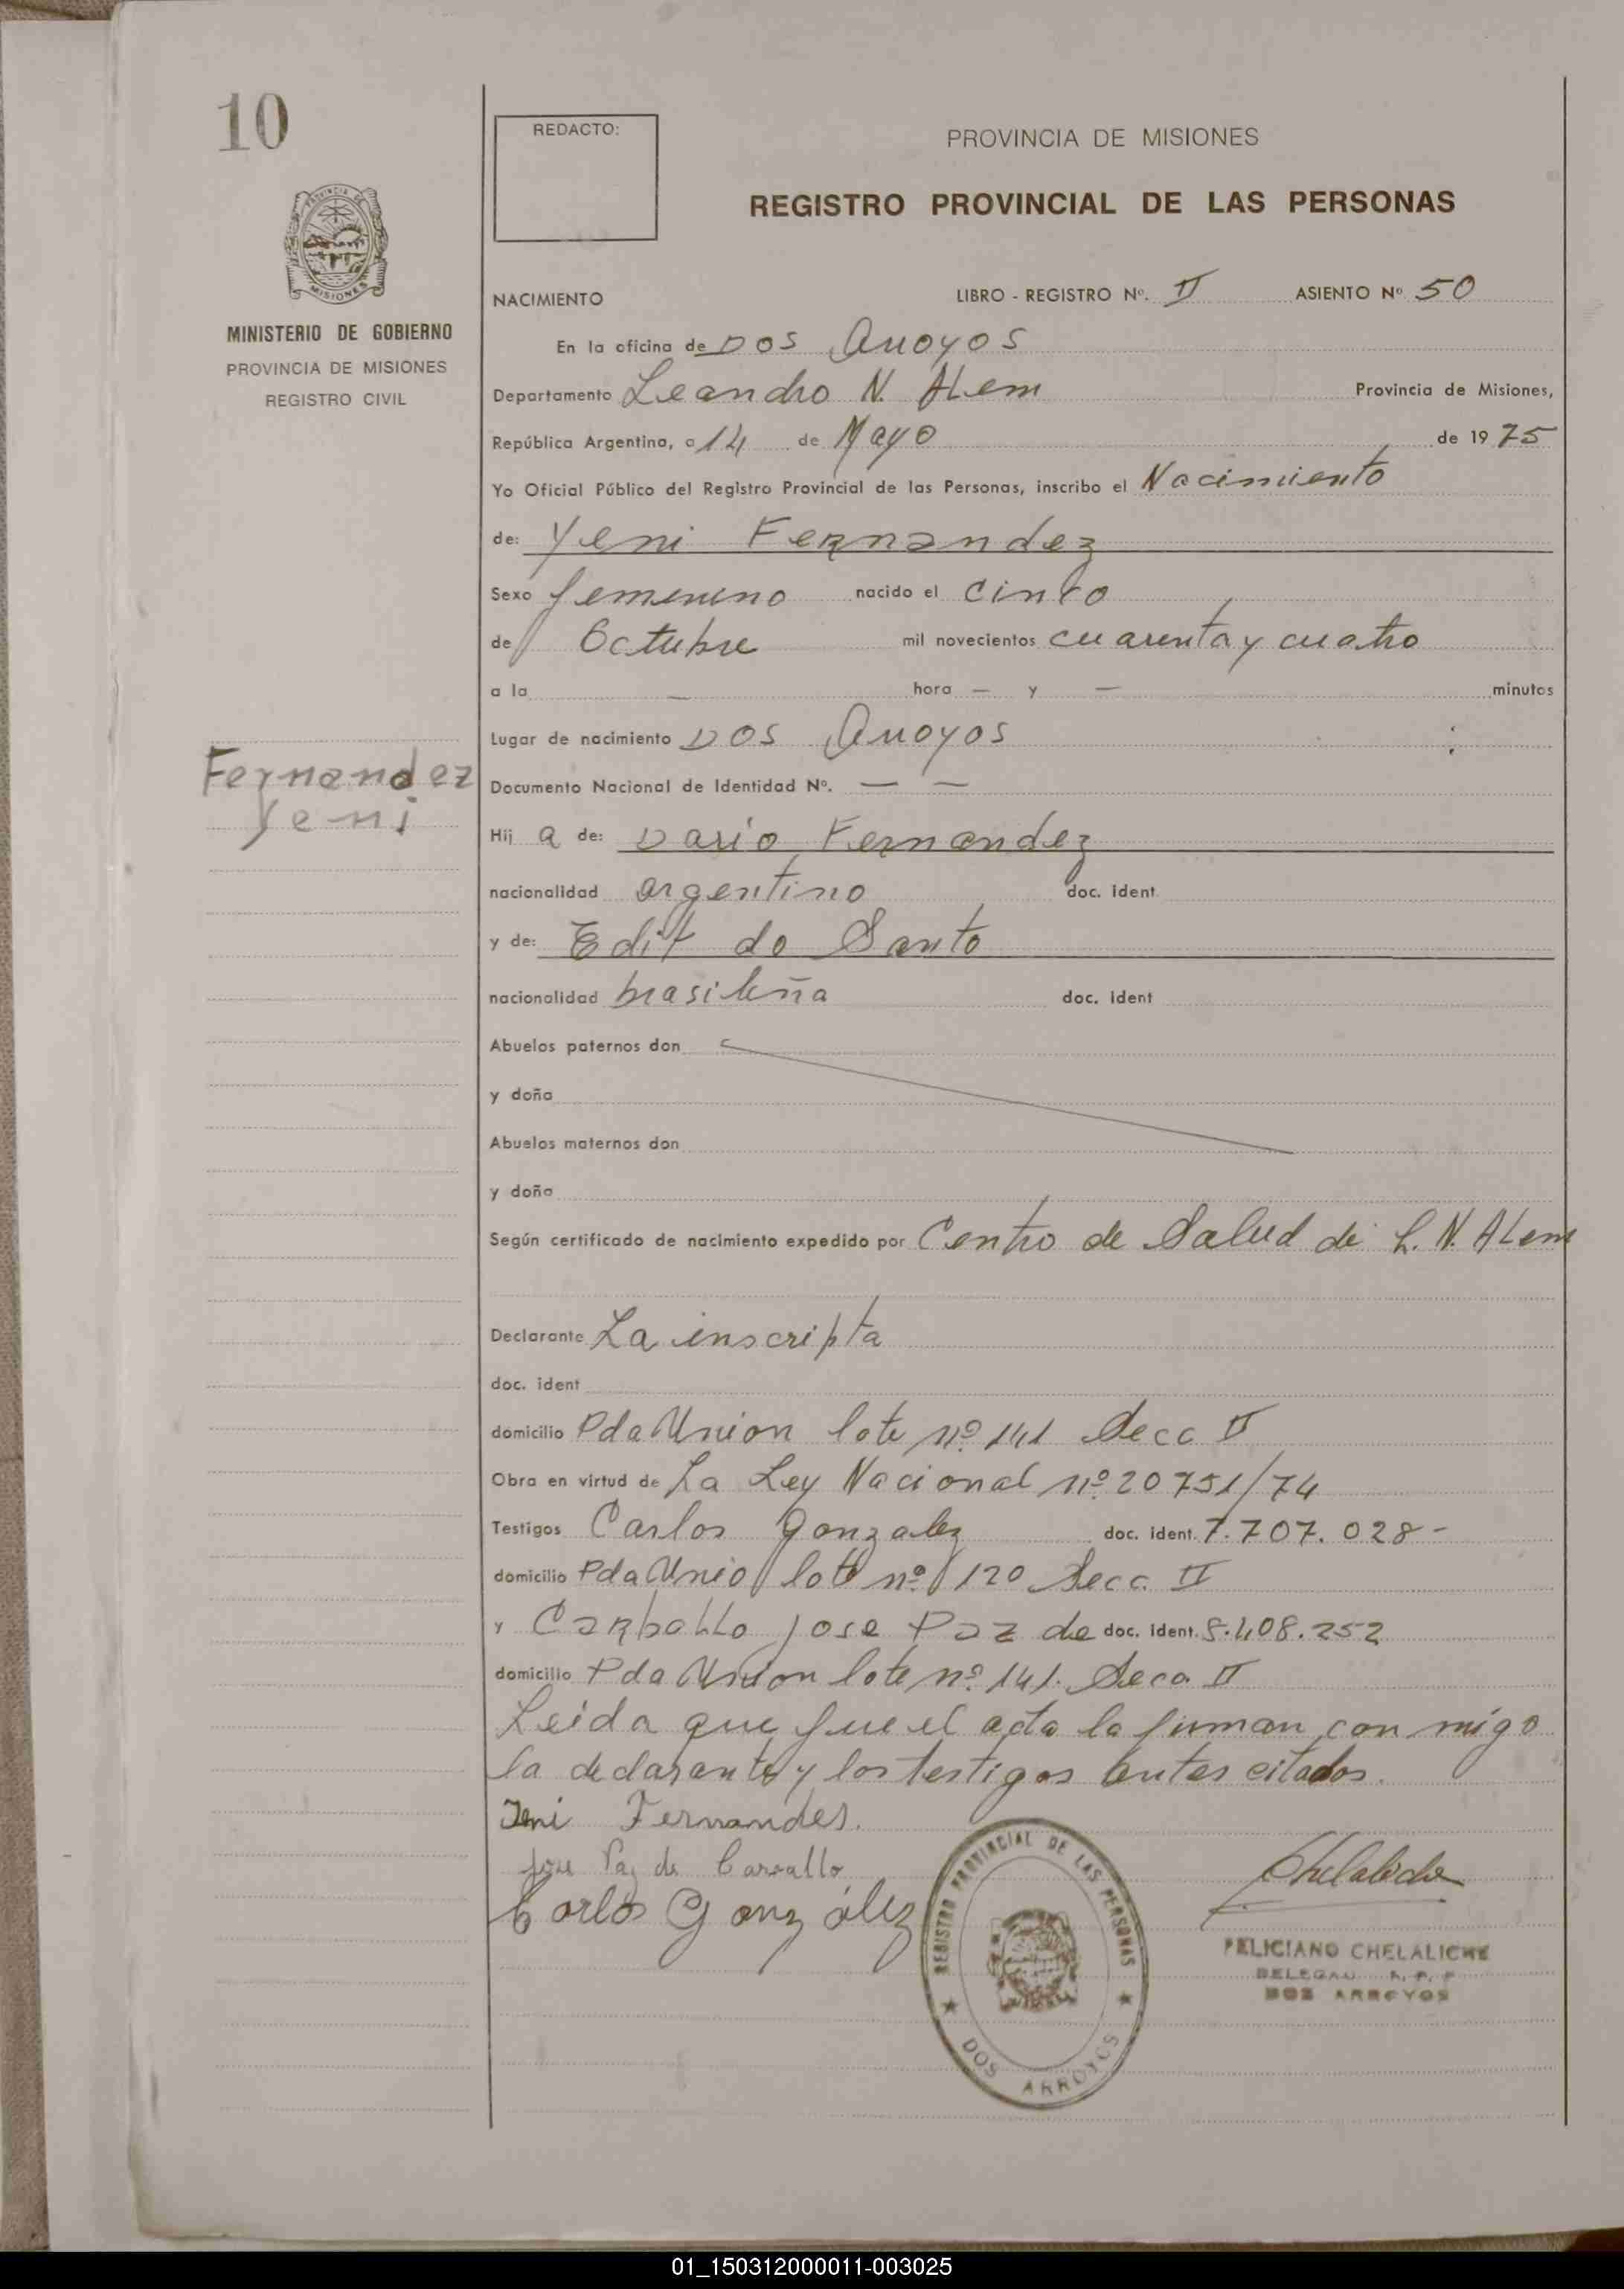 10
REDACTO:
PROVINCIA DE MISIONES
REGISTRO PROVINCIAL DE LAS PERSONAS
PROVINCIA DE
MISIONES
MINISTERIO DE GOBIERNO
PROVINCIA DE MISIONES
REGISTRO CIVIL
NACIMIENTO LIBRO - REGISTRO Nº. II ASIENTO Nº 50
En la oficina de Dos Arroyos
Departamento Leandro N. ALem Provincia de Misiones,
República Argentina, a 14 de Mayo de 1975
Yo Oficial Público del Registro Provincial de las Personas, inscribo el Nacimiento
de: Yeni Fernandez
Sexo femenino nacido el cinco
de Octubre mil novecientos cuarenta y cuatro
a la — hora — y — minutos
Lugar de nacimiento Dos Arroyos
Fernandez
Yeni
Documento Nacional de Identidad Nº. — —
Hij a de: Dario Fernandez
nacionalidad argentino doc. ident.
y de: Edit do Santo
nacionalidad brasileña doc. ident
Abuelos paternos don
y doña
Abuelos maternos don
y doña
Según certificado de nacimiento expedido por Centro de Salud de L. N. ALem
Declarante La inscripta
doc. ident
domicilio Pda Union lote nº 141 Secc II
Obra en virtud de La Ley Nacional nº 20751/74
Testigos Carlos Gonzalez doc. ident. 7.707.028-
domicilio Pda Unio lote nº 120 Secc. II
y Carballo Jose Paz de doc. ident. 8.408.252
domicilio Pda Union lote nº 141. Secc. II
Leida que fue el acta la firman con migo
la declarante y los testigos antes citados.
Jeni Fernandes.
Jose Paz de Carvallo
Carlos González
Chelaliche
REGISTRO PROVINCIAL DE LAS PERSONAS
DOS ARROYOS
FELICIANO CHELALICHE
DOS ARROYOS
01_150312000011-003025